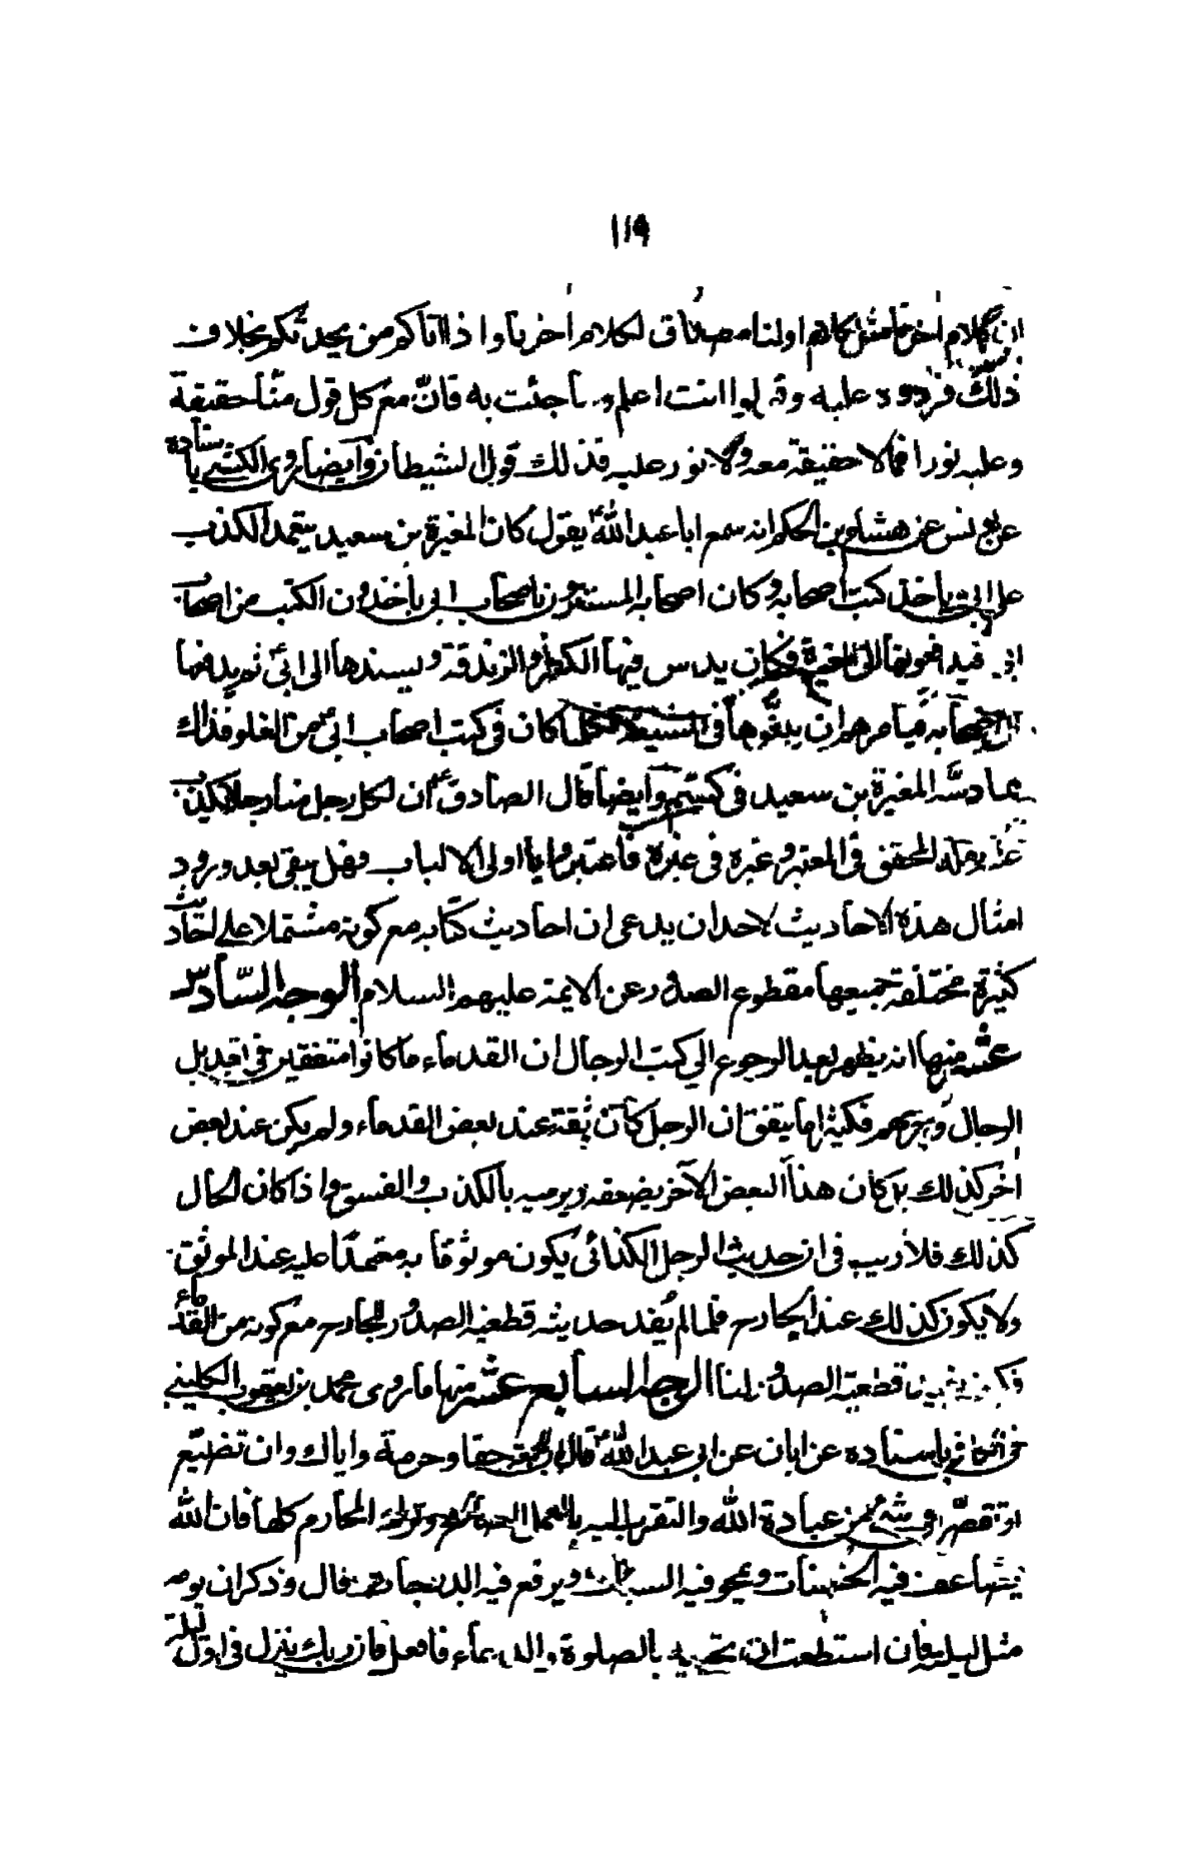 ١١٩
ان كلام اخرنا مثل كلام اولنا مصداق لكلام اخرنا واذا اتاكم من يحدثكم بخلاف
ذلك فردوه عليه وقولوا انت اعلم وما جئت به فان مع كل قول منا حقيقة
وعليه نورا فما لا حقيقة معه ولا نور عليه فذلك قول الشيطان وايضا روى الكشي باسناده
عن يونس عن هشام بن الحكم انه سمع ابا عبد الله ع يقول كان المغيرة بن سعيد يتعمد الكذب
على ابي ويأخذ كتب اصحابه وكان اصحابه المستترون باصحاب ابي يأخذون الكتب من اصحاب
ابي فيدفعونها الى المغيرة فكان يدس فيها الكفر والزندقة ويسندها الى ابي ثم يدفعها
الى اصحابه فيأمرهم ان يبثوها في الشيعة فكل ما كان في كتب اصحاب ابي من الغلو فذاك
مما دسه المغيرة بن سعيد في كتبهم وايضا قال الصادق ع ان لكل رجل منا رجلا يكذب
عليه نقله المحقق في المعتبر وغيره في غيره فاعتبروا يا اولى الالباب فهل يبقى بعد ورود
امثال هذه الاحاديث لاحد ان يدعى ان احاديث كتابه مع كونه مشتملا على احاديث
كثيرة مختلفة جميعها مقطوع الصدور عن الايمة عليهم السلام الوجه السادس
عشر منها انه يظهر بعد الرجوع الى كتب الرجال ان القدماء ما كانوا متفقين في تعديل
الرجال وجرحهم فكثيرا ما يتفق ان الرجل كان ثقة عند بعض القدماء ولم يكن عند بعض
اخر كذلك بل كان هذا البعض الآخر يضعفه ويرميه بالكذب والفسق واذا كان الحال
كذلك فلا ريب في ان حديث الرجل الكذائي يكون موثوقا به معتمدا عليه عند الموثق
ولا يكون كذلك عند الجارح فلما لم يفد حديثه قطعية الصدور للجارح مع كونه من القدماء
فكيف يفيد قطعية الصدور لنا الوجه السابع عشر منها ما روى محمد بن يعقوب الكليني
في الكافي باسناده عن ابان عن ابي عبد الله ع قال ان للجمعة حقا وحرمة واياك وان تضيع
او تقصر في شئ من عبادة الله والتقرب اليه بالعمل الصالح وترك المحارم كلها فان الله
يضاعف فيه الحسنات ويمحو فيه السيئات ويرفع فيه الدرجات قال وذكر ان يومه
مثل ليلته فان استطعت ان تحييه بالصلوة والدعاء فافعل فان ربك ينزل في اول ليلة